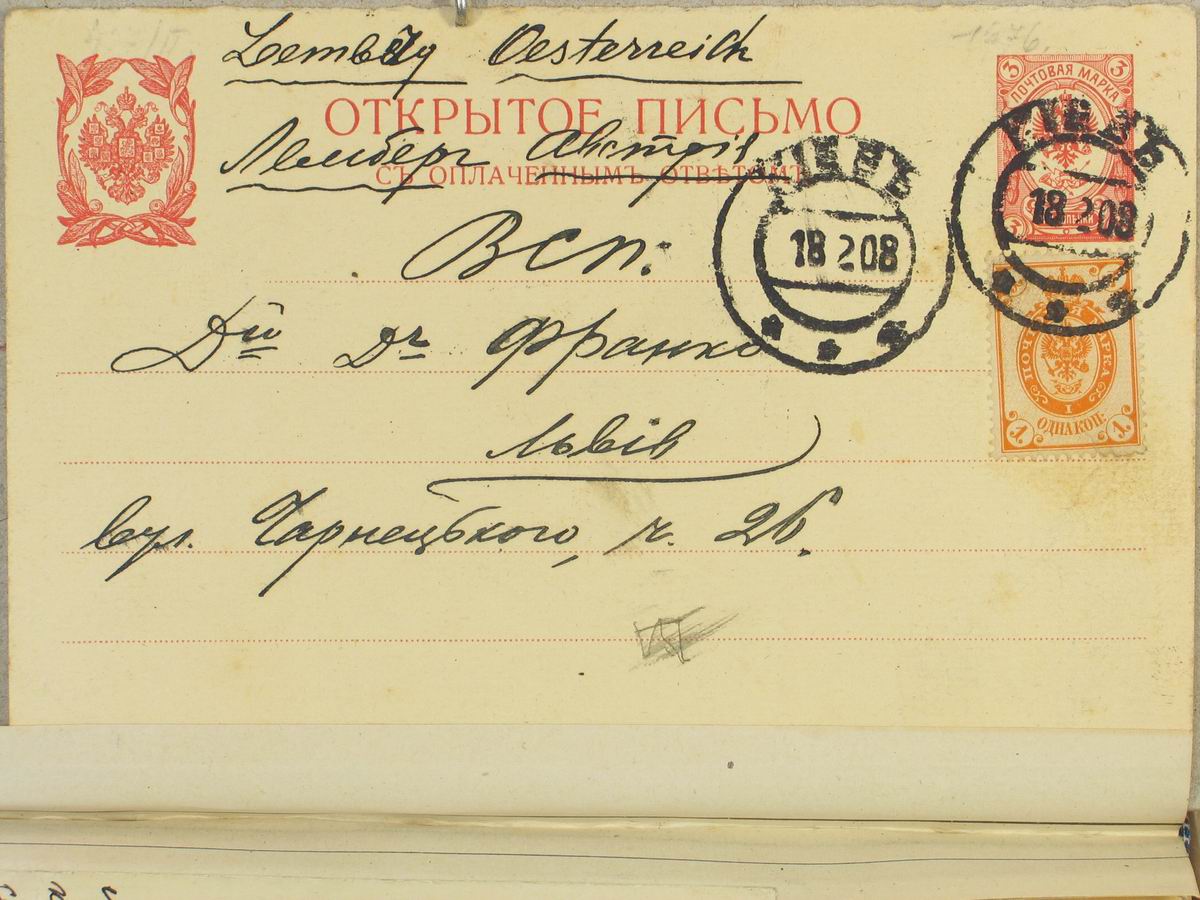 Lemberg Oesterreich
ОТКРЫТОЕ ПИСЬМО
Лемберг Австрія
СЪ ОПЛАЧЕННЫМЪ ОТВѢТОМЪ
3 3
ПОЧТОВАЯ МАРКА
КІЕВЪ
18 2 08
КІЕВЪ
18 2 08
Всп.
Дій Дr Франко
Львів
вул. Чарнецького, ч. 26.
ОДНА КОП.
1 1